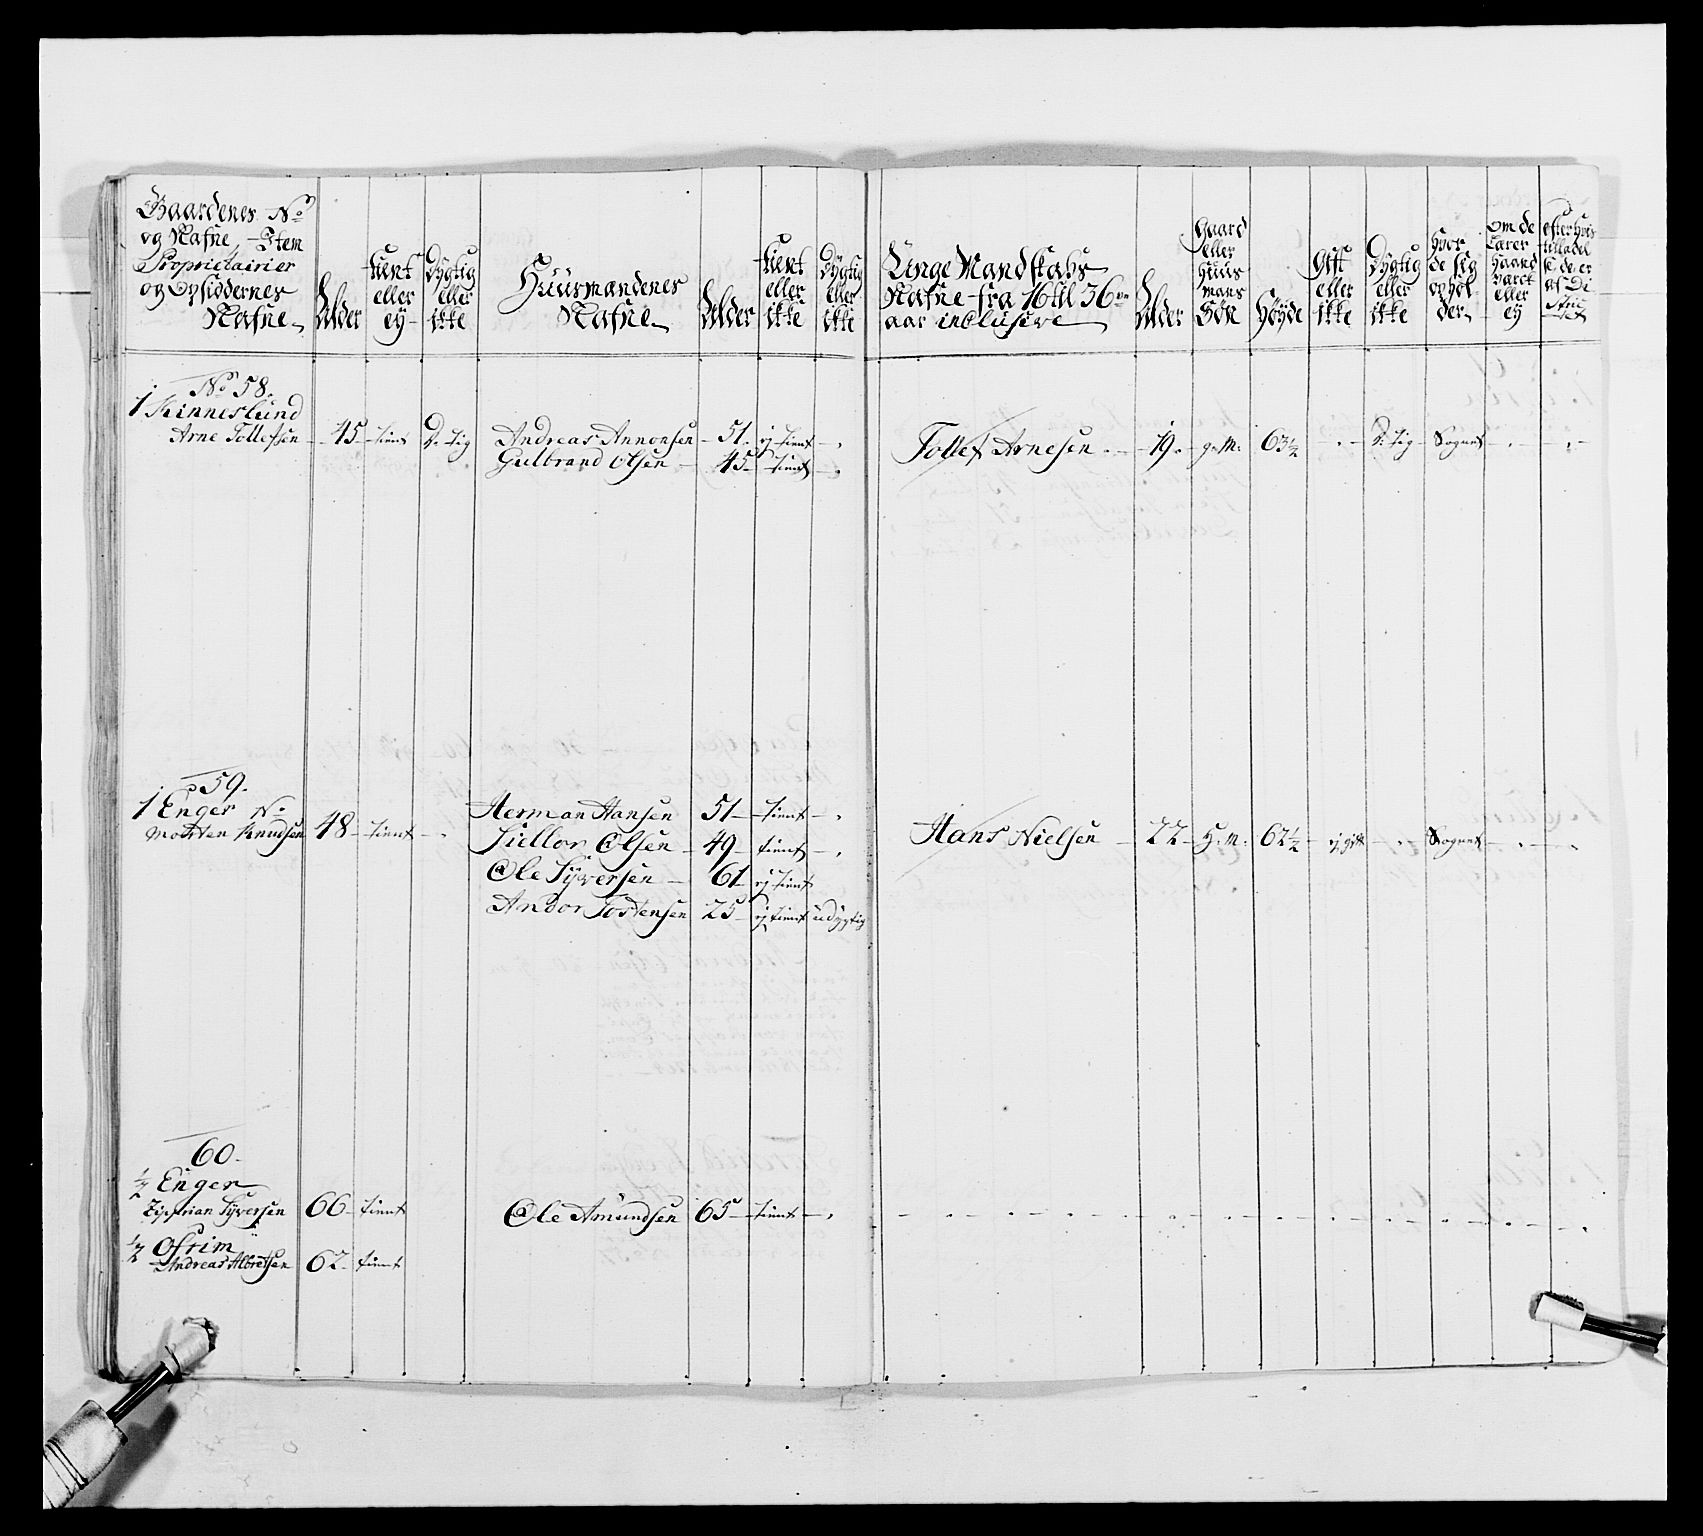 Gaardenes No
og Nafne, Item
Proprietairier
og Opsiddernes
Nafne
Alder
tient
eller
ey
Dygtig
eller
ikke
Huusmandenes
Nafne
Alder
tient
eller
ikke
Dygtig
eller
ikke
Unge Mandskabs
Nafne fra 16 til 36
aar inclusive
Alder
Gaard
eller
Huus
Mans
Søn
Høyde
Gift
eller
ikke
Dygtig
eller
ikke
Hvor
de sig
ophol-
der
om de
Haard
eller
ey
No 58.
1 Kinneslund
Arne Tollefsen 45 tient D. tig Andreas Annonsen 51 ej tient
Gulbrand Olsen 45 tient
Tollef Arnesen 19 g. M. 63½ D. tig Sognet
No 59.
1 Enger
Morten Knudsen 48 tient
Herman Hansen 51 tient
Siellor Olsen 49 tient
Ole Syversen 61 ej tient
Andor Tostensen 25 ej tient udygtig
Hans Nielsen 22 H. M. 62½ ej gift Sognet
60.
½ Enger
Ziprian Syversen 66 tient Ole Amundsen 65 tient
½ Ofrim
Andreas Albretsen 62 tient